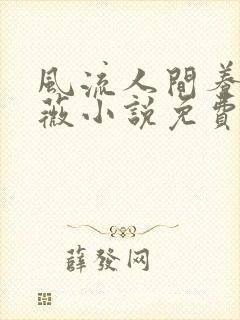 風流人間養
薇小說免費
薛發网